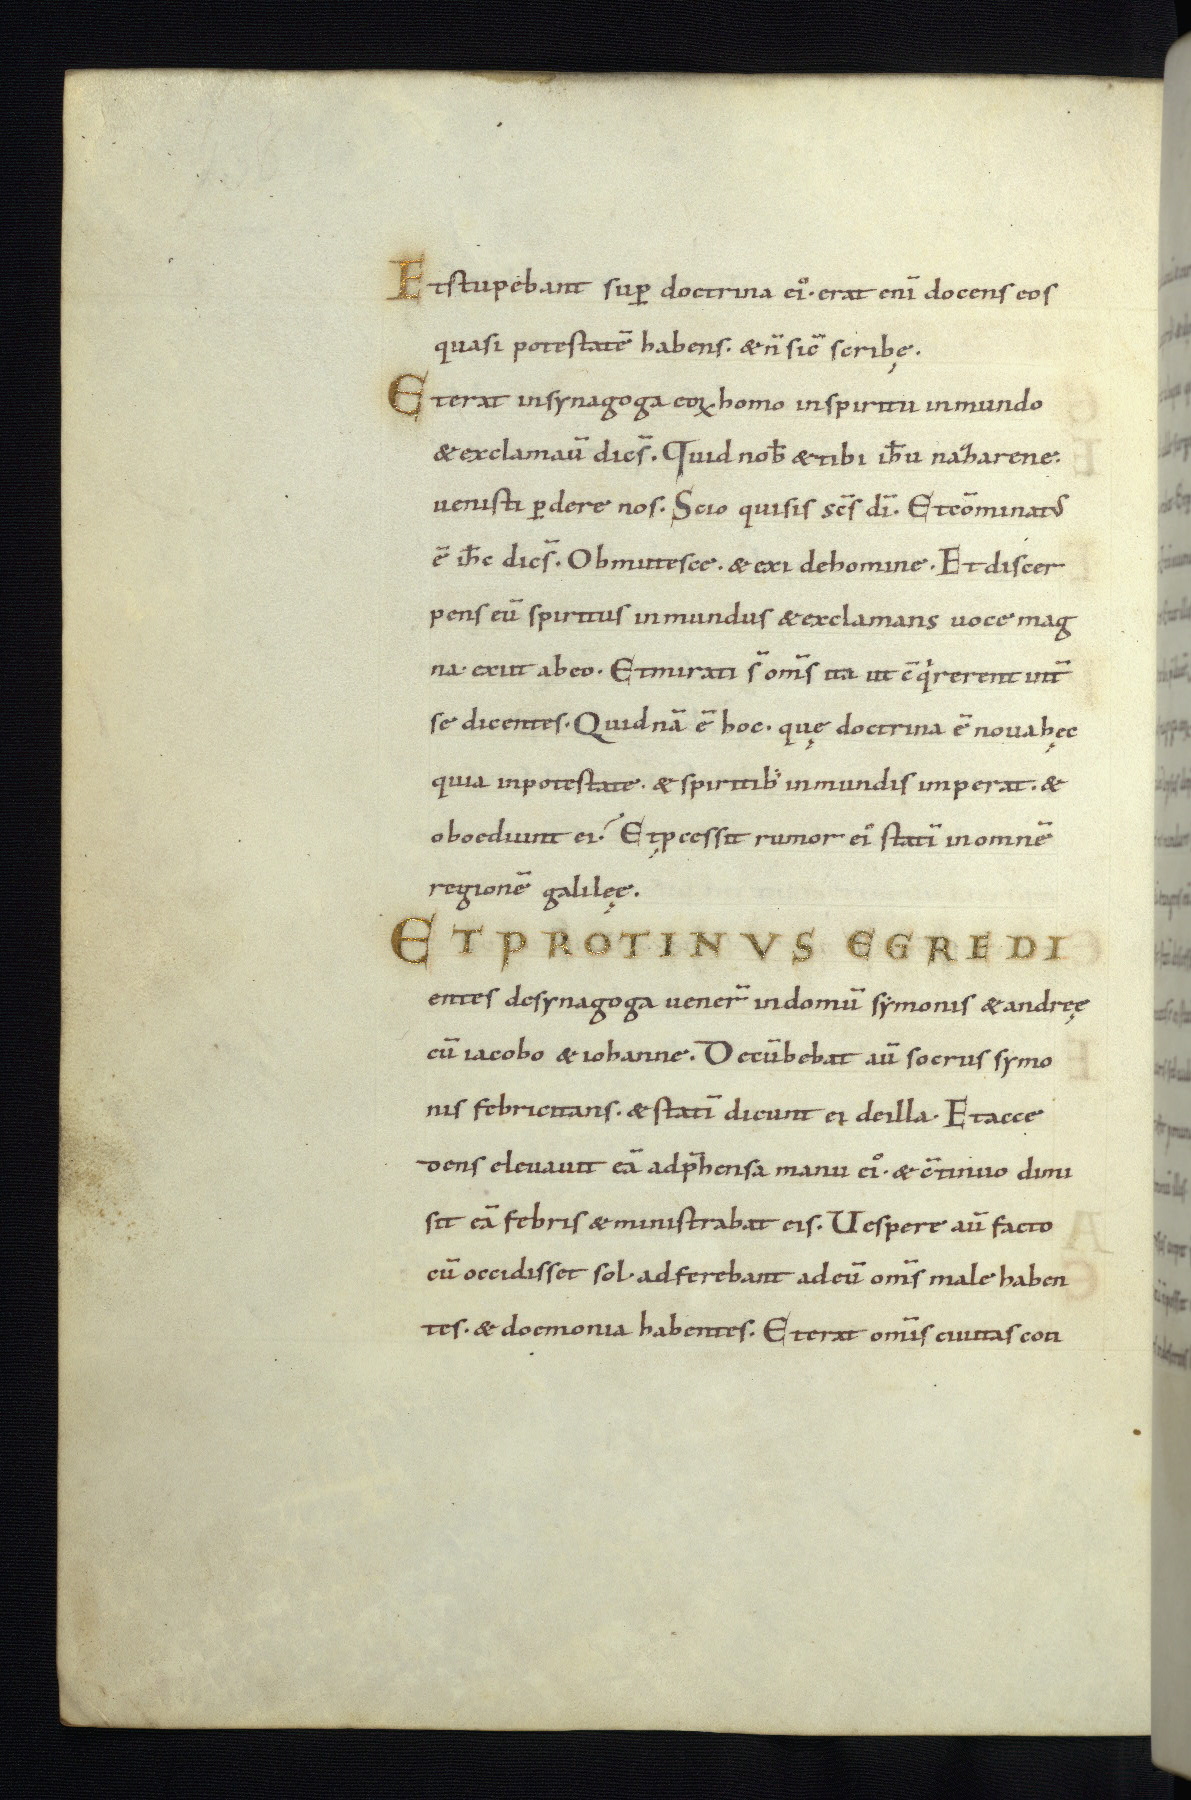 Et stupebant sup̄ doctrina ei᾽· erat eni̅ docens eos
quasi potestate̅ habens· & n̅ sic̅ scribę·
Et erat in synagoga eoꝝ homo in spiritu inmundo
& exclamau̅ dice̅s· Quid nob̅ & tibi ih̅u nazarene·
uenisti ꝑdere nos· Scio qui sis sc̅s di̅· Et co̅minat᾽
e̅ ih̅c dic̅s· Obmutesce· & exi de homine· Et discer
pens eu̅ spiritus inmundus & exclamans uoce mag
na· exiit ab eo· Et mirati s̅ om̅s ita ut c̅q᾽rerent int̅
se dicentes· Quid na̅ e̅ hoc· quę doctrina e̅ noua hęc
quia in potestate· & spiritib᾽ inmundis imperat· &
oboediunt ei· Et ꝓcessit rumor ei᾽ stati̅ in omne̅
regione̅ galilęę·
ET PROTINVS EGREDI
entes de synagoga uener̅ in domu̅ symonis & andręę
cu̅ iacobo & iohanne· Decu̅bebat au̅ socrus symo
nis febricitans· & stati̅ dicunt ei de illa· Et acce
dens eleuauit ea̅ adp̅hensa manu ei᾽· & c̅tinuo dimi
sit ea̅ febris & ministrabat eis· Uespere au̅ facto
cu̅ occidisset sol· adferebant ad eu̅ om̅s male haben
tes· & doemonia habentes· Et erat om̅is ciuitas con